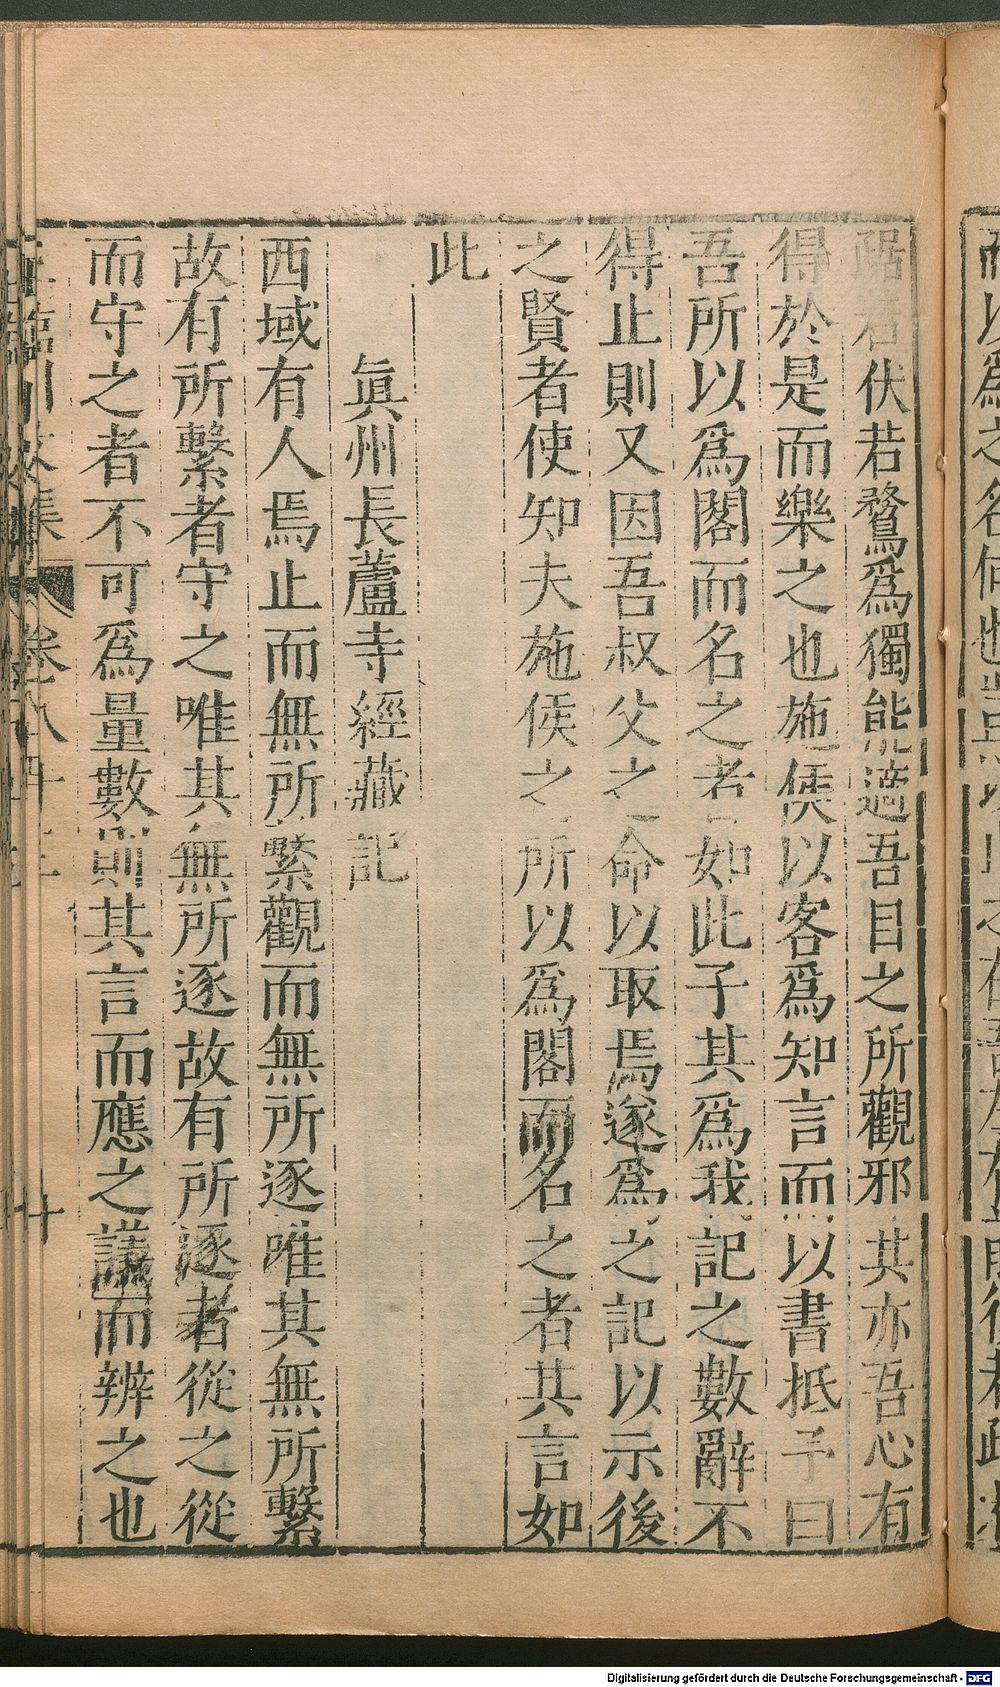 踞若伏若騖爲獨能適吾目之所觀邪其亦吾心有
得於是而樂之也施侯以客爲知言而以書抵予曰
吾所以爲閣而名之者如此子其爲我記之數辭不
得止則又因吾叔父之命以取焉遂爲之記以示後
之賢者使知夫施侯之所以爲閣而名之者其言如
此
眞州長蘆寺經藏記
西域有人焉止而無所繫觀而無所逐唯其無所繫
故有所繫者守之唯其無所逐故有所逐者從之從
而守之者不可爲量數則其言而應之議而辨之也
Digitalisierung gefördert durch die Deutsche Forschungsgemeinschaft - DFG